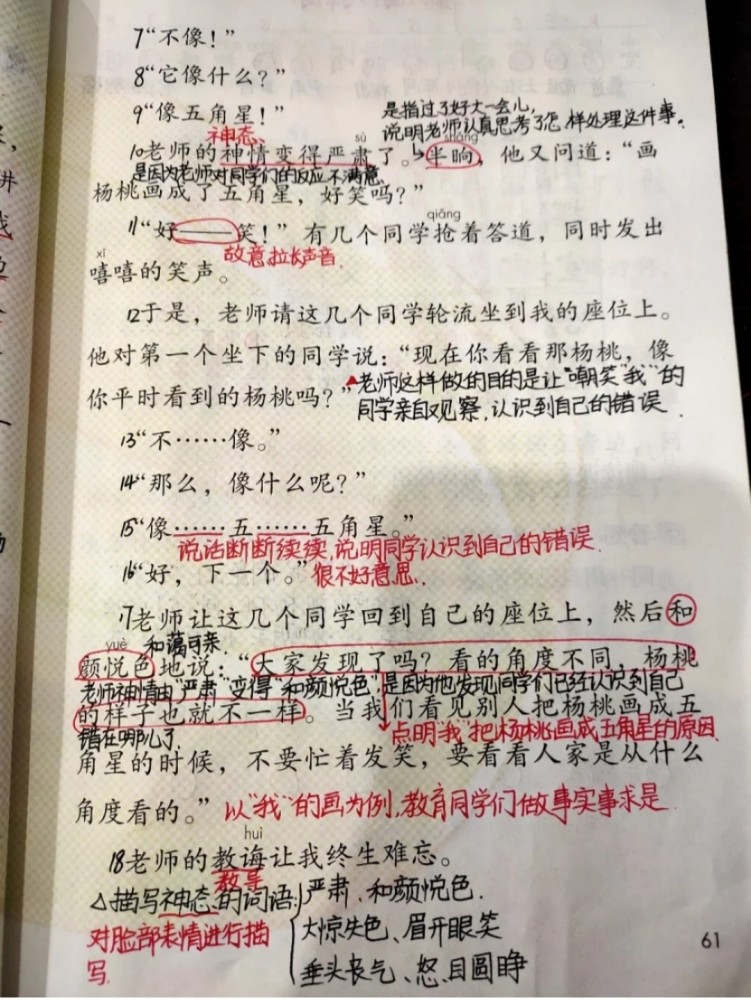 7“不像！”
8“它像什么？”
9“像五角星！”
是指过了好大一会儿，
说明老师认真思考了怎样处理这件事。
神态
sù
shǎng
10老师的神情变得严肃了。半晌，他又问道：“画
是因为老师对同学们的反应不满意
杨桃画成了五角星，好笑吗？”
qiǎng
11“好——笑！”有几个同学抢着答道，同时发出
xī
故意拉长声音.
嘻嘻的笑声。
12于是，老师请这几个同学轮流坐到我的座位上。
他对第一个坐下的同学说：“现在你看看那杨桃，像
你平时看到的杨桃吗？”
老师这样做的目的是让“嘲笑“我”的
同学亲自观察，认识到自己的错误.
13“不……像。”
14“那么，像什么呢？”
15“像……五……五角星。”
说话断断续续，说明同学认识到自己的错误.
16“好，下一个。”
很不好意思.
17老师让这几个同学回到自己的座位上，然后和
yuè
和蔼可亲.
颜悦色地说：“大家发现了吗？看的角度不同，杨桃
老师神情由“严肃”变得“和颜悦色”，是因为他发现同学们已经认识到自己
的样子也就不一样。当我们看见别人把杨桃画成五
错在哪儿了.
点明“我”把杨桃画成五角星的原因.
角星的时候，不要忙着发笑，要看看人家是从什么
角度看的。”
以“我”的画为例，教育同学们做事实事求是.
huì
18老师的教诲让我终生难忘。
教导
△描写神态的词语
严肃、和颜悦色.
对脸部表情进行描
写.
大惊失色、眉开眼笑
垂头丧气、怒目圆睁
61